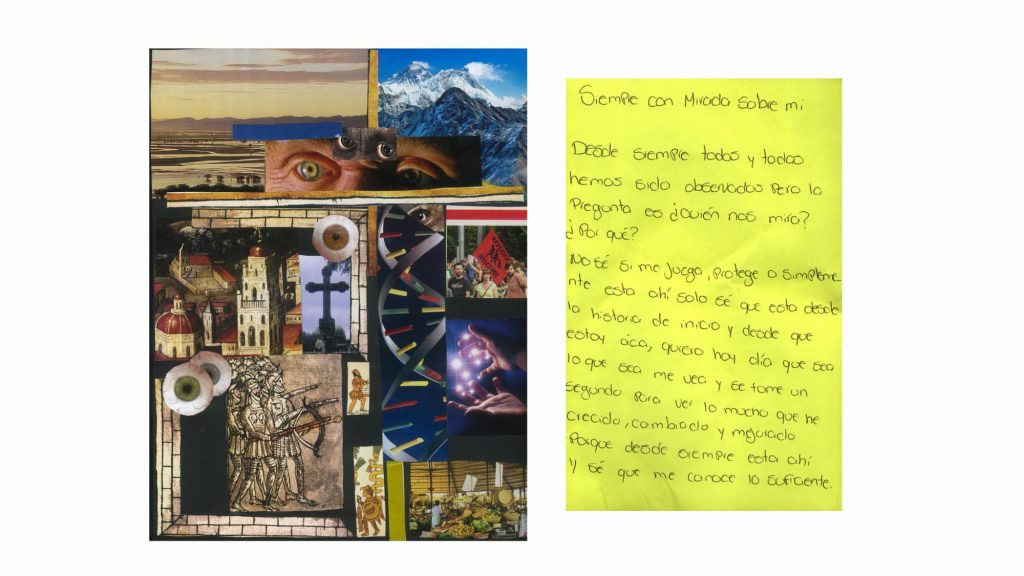 Siempre con Mirada sobre mi
Desde siempre todos y todas
hemos sido observados Pero la
Pregunta es ¿Quién nos mira?
¿Por qué?
No sé si me Juzga, Protege o simpleme
nte esta ahí solo sé que esta desde
la historia de inicio y desde que
estoy aca, quiero hoy día que sea
lo que sea me vea y se tome un
segundo Para ver lo mucho que he
crecido, cambiado y mejorado
Porque desde siempre esta ahí
Y sé que me conoce lo suficiente.